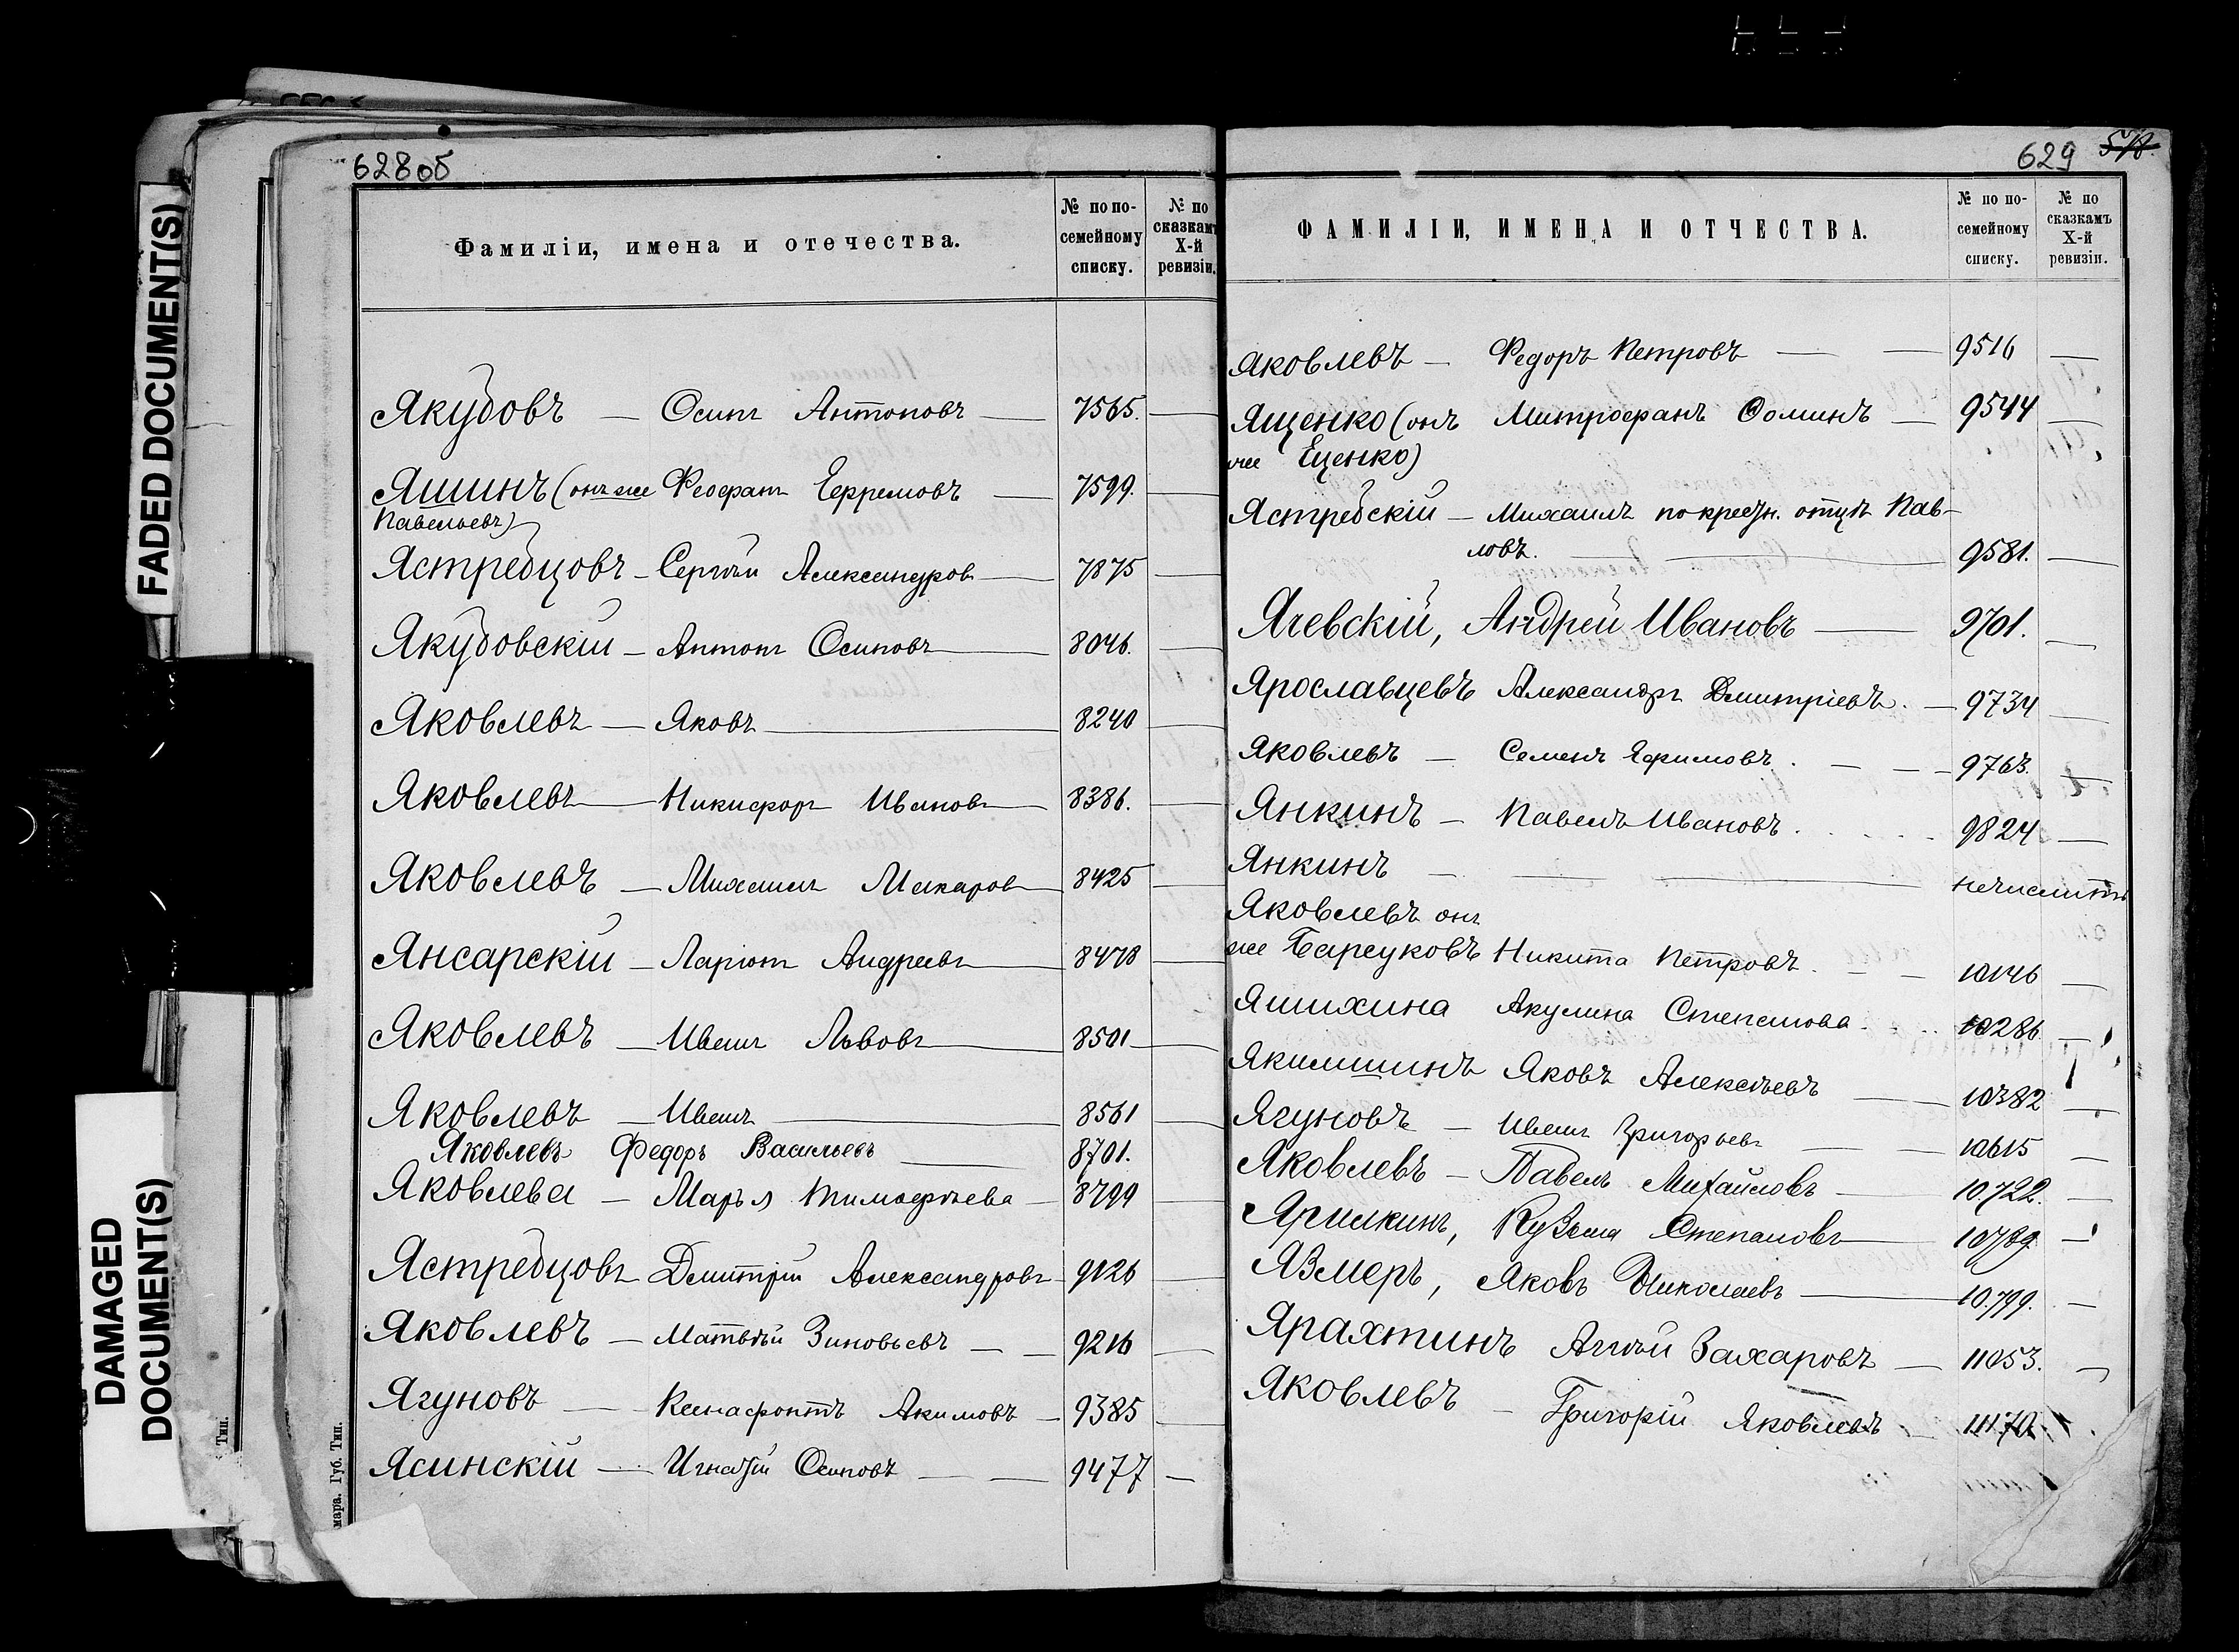 FADED DOCUMENT(S)
DAMAGED
DOCUMENT(S)
628об
Фамиліи, имена и отечества.
№ по по-
семейному
списку.
№ по
сказкамъ
X-й
ревизіи.
Якубовъ — Осипъ Антоновъ — 7565. —
Яшинъ (онъ же Феофанъ Ефремовъ — 7599. —
Павельевъ)
Ястребцовъ — Сергѣй Александров — 7875 —
Якубовскій — Антонъ Осиповъ — 8046. —
Яковлевъ — Яковъ — 8240 —
Яковлевъ — Никифоръ Иванов — 8386. —
Яковлевъ — Михаилъ Макаров — 8425 —
Янсарскій — Ларіонъ Андреевъ — 8478 —
Яковлевъ — Иванъ Львовъ — 8501 —
Яковлевъ — Иванъ — 8561
Яковлевъ Федоръ Васильевъ — 8701.
Яковлева — Марья Тимофѣева — 8799
Ястребцовъ Дмитрій Александровъ — 9126 —
Яковлевъ — Матвѣй Зиновьевъ — — 9216 —
Ягуновъ — Ксенафонтъ Акимовъ — 9385 —
Ясинскій — Игнатій Осиповъ — — 9477 —
мара. Губ. Тип.
Тип.
629 578.
ФАМИЛІИ, ИМЕНА И ОТЧЕСТВА.
№ по по-
семейному
списку.
№ по
сказкамъ
X-й
ревизіи.
Яковлевъ — Федоръ Петровъ — — 9516 —
Ященко (онъ Митрофанъ Фоминъ — 9544 —
же Еценко)
Ястребскій — Михаилъ по крестн. отцѣ Пав-
ловъ. — — 9581. —
Ячевскій, Андрей Ивановъ — 9701. —
Ярославцевъ Александръ Дмитріевъ. — 9734 —
Яковлевъ — Семенъ Ефимовъ. — — 9763. —
Янкинъ — Павелъ Ивановъ. 9824 —
Янкинъ — — — нечислитъ
Яковлевъ онъ
же Барсуковъ Никита Петровъ. — — 10146 —
Яшихина Акулина Степанова. 10286 —
Якимшинъ Яковъ Алексѣевъ — — 10382 —
Ягуновъ — Иванъ Григорьевъ — — 10615 —
Яковлевъ — Павелъ Михайловъ — 10.722. —
Кузьма Степановъ — 10789 —
Язмеръ, Яковъ Николаевъ — 10.799. —
Ярахтинъ Аггѣй Захаровъ — 11053. —
Яковлевъ — Григорій Яковлевъ — 11170.